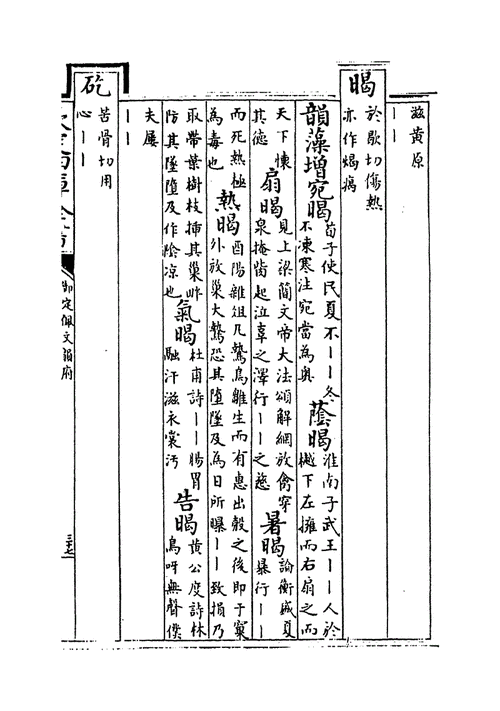 滋黃原
丨丨
暍
於歇切傷熱
亦作㵣痛
韻藻增宛暍
荀子使民夏不丨丨冬
不凍寒注宛當為奥
蔭暍
淮南子武王丨丨人於
樾下左擁而右扇之而
天下懐
其德
扇暍
見上梁簡文帝大法頌解網放禽穿
泉掩胔起泣辜之澤行丨丨之慈
暑暍
論衡盛夏
暴行丨丨
而死熱極
為毒也
熱暍
酉陽雜俎凡鷙鳥雛生而有惠出殼之後即于窠
外放巢大鷙恐其墮墜及為日所曝丨丨致損乃
取帶葉樹枝揷其巢畔
防其墜墮及作隂凉也
氣暍
杜甫詩丨丨腸胃
融汗滋衣裳汚
告暍
黄公度詩林
鳥呀無聲僕
夫屢
丨丨
矻
苦骨切用
心丨丨
御定佩文韻府